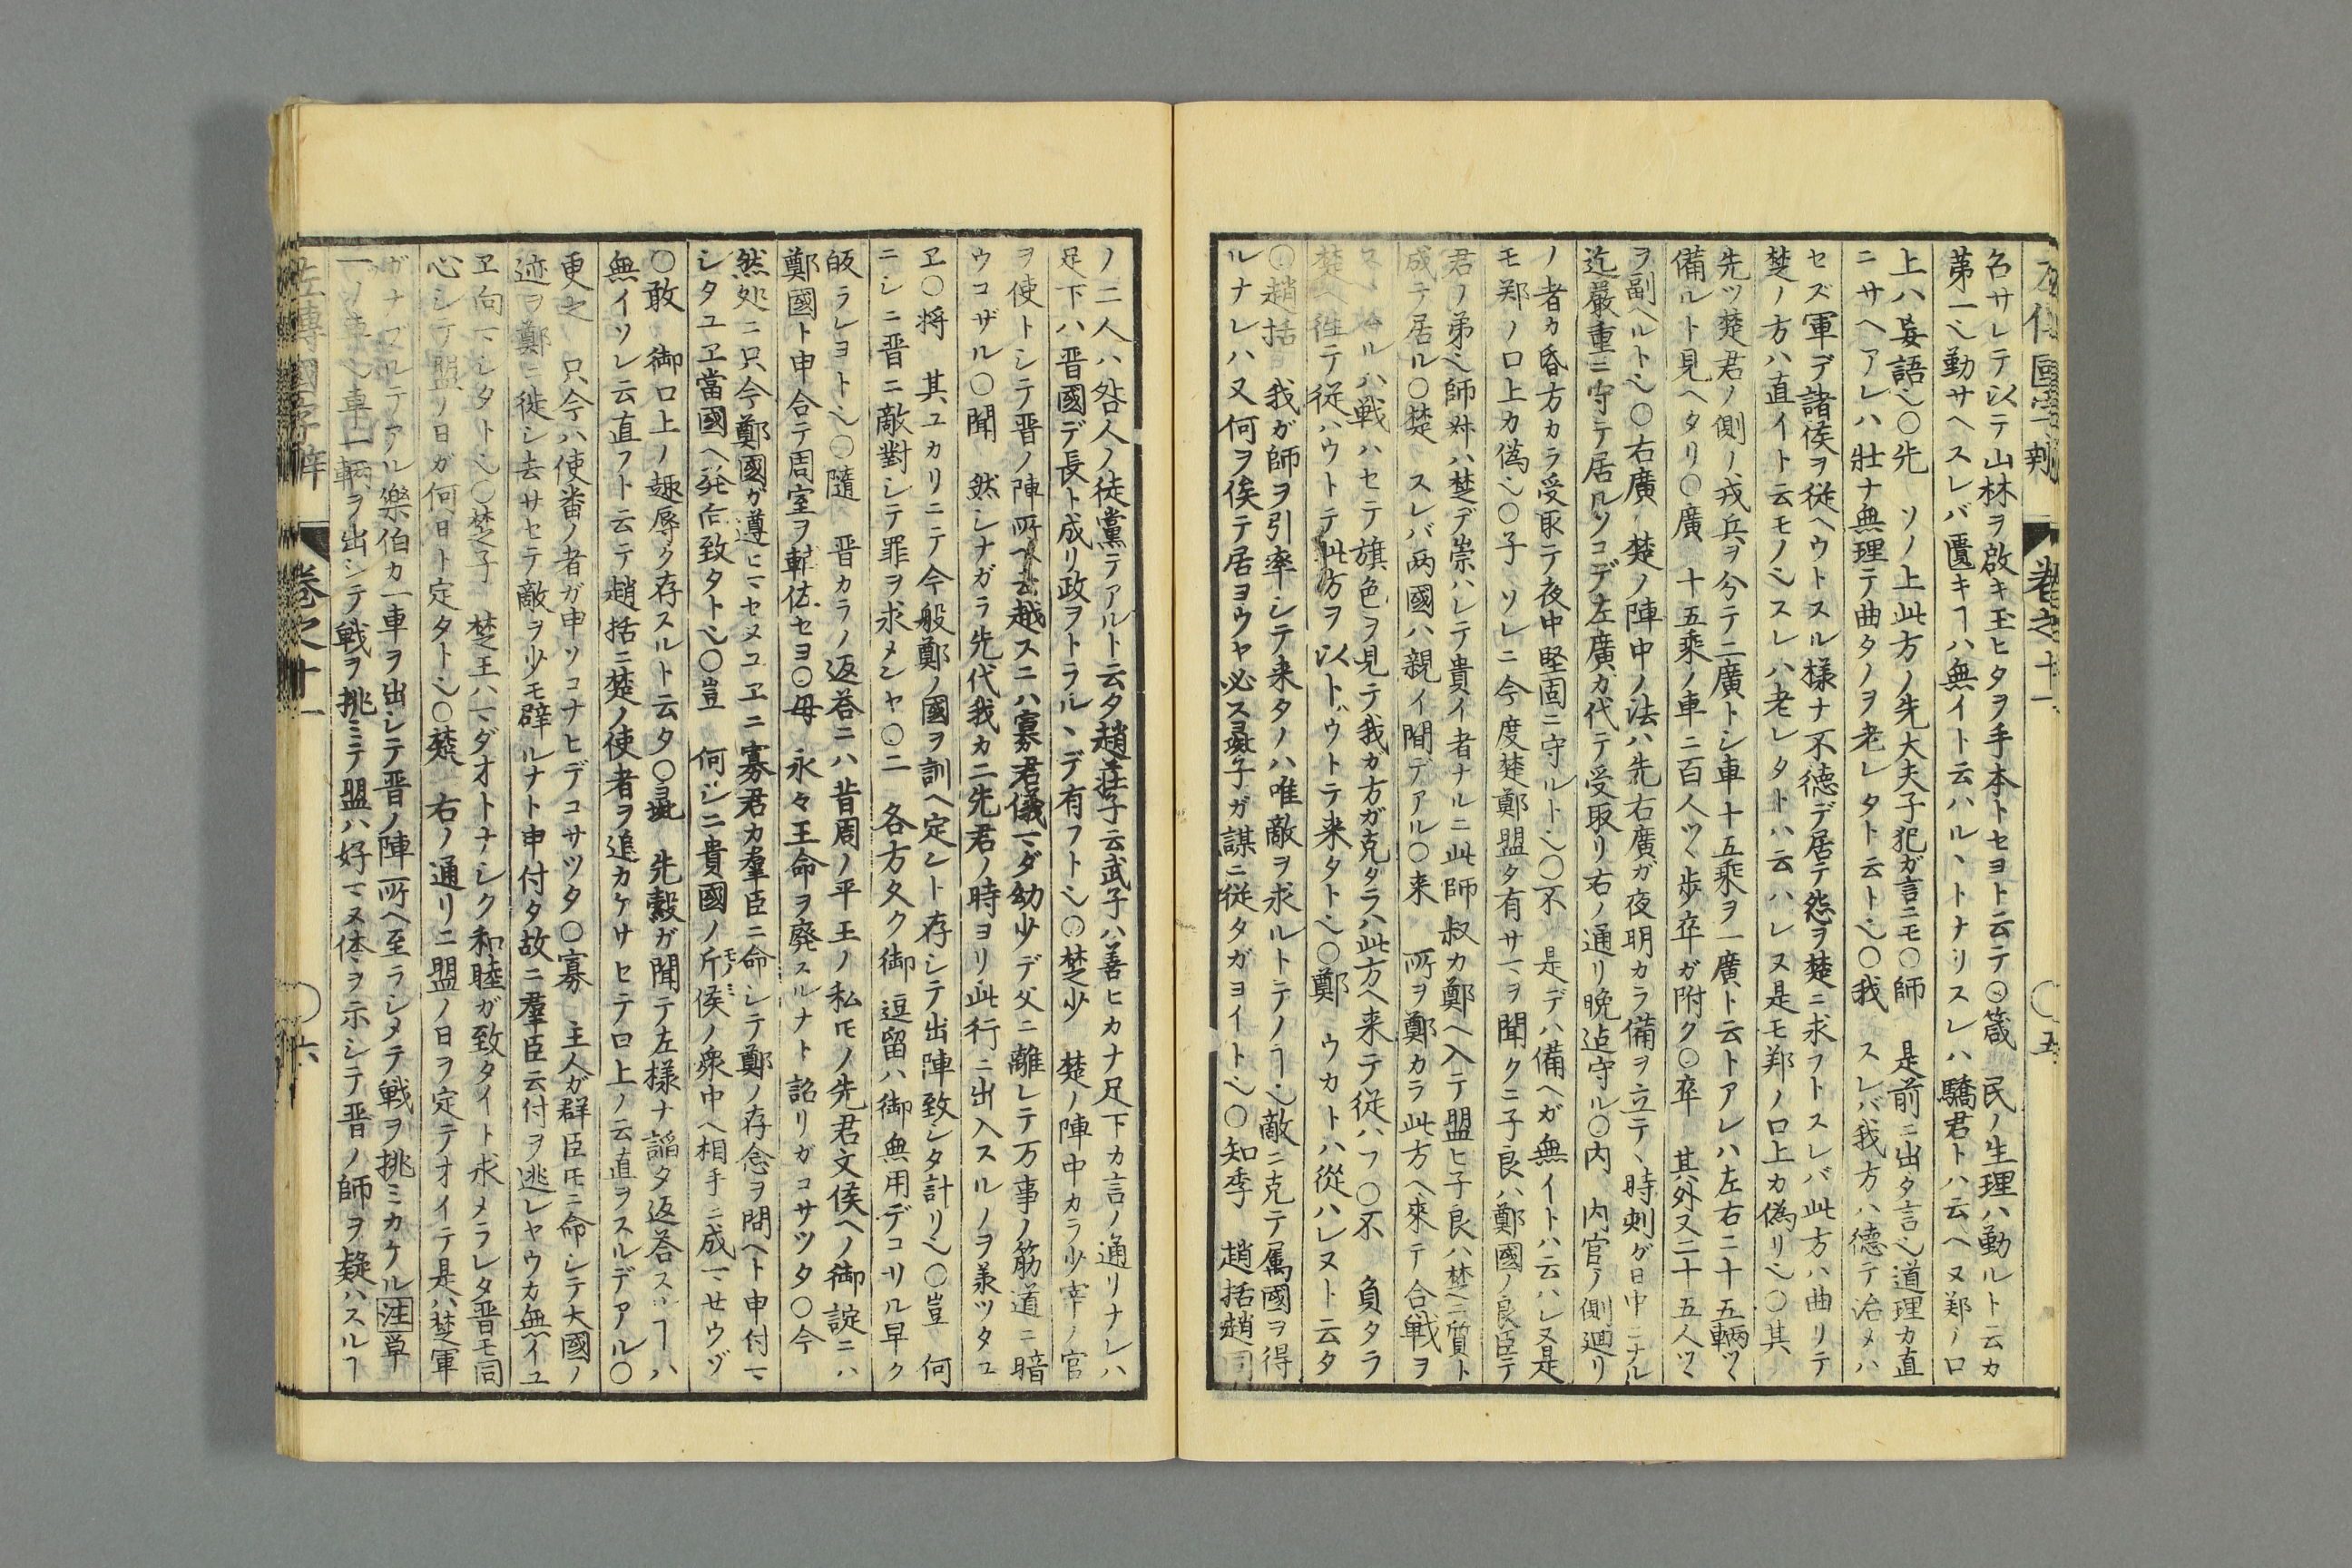 左傳國字辨 卷之十一 ○五
名サレテ以テ山林ヲ啟キ玉ヒタヲ手本トセヨト云テ○箴 民ノ生理ハ勤ルト云カ
第一ヘ勤サヘスレバ匱キヿハ無イト云ハル、トナリスレハ驕君トハ云ヘヌ鄭ノ口
上ハ妄語ヘ○先 ソノ上此方ノ先大夫子犯ガ言ニモ○師 是前ニ出タ言ヘ道理カ直
ニサヘアレハ壮ナ無理テ曲タノヲ老レタト云トヘ○我 スレバ我方ハ徳テ治メハ
セズ軍デ諸侯ヲ従ヘウトスル様ナ不徳デ居テ怨ヲ楚ニ求フトスレバ此方ハ曲リテ
楚ノ方ハ直イト云モノヘスレハ老レタトハ云ハレヌ是モ鄭ノ口上カ偽リヘ○其
先ツ楚君ノ側ノ戎兵ヲ分テ二廣トシ車十五乘ヲ一廣ト云トアレハ左右ニ十五輌ツヽ
備ルト見ヘタリ○廣 十五乘ノ車ニ百人ツヽ歩卒ガ附ク○卒 其外又二十五人ツヽ
ヲ副ヘルトヘ○右廣 楚ノ陣中ノ法ハ先右廣ガ夜明カラ備ヲ立テ、時刻ガ日中ニナル
迄嚴重ニ守テ居ルソコデ左廣カ代テ受取リ右ノ通リ晩迠守ル○内 内官ノ側廻リ
ノ者カ昏方カラ受取テ夜中堅固ニ守ルトヘ○不 是デハ備ヘガ無イトハ云ハレヌ是
モ鄭ノ口上カ偽ヘ○子 ソレニ今度楚鄭盟タ有サマヲ聞クニ子良ハ鄭國ノ良臣テ
君ノ弟ヘ師叔ハ楚デ崇ハレテ貴イ者ナルニ此師叔カ鄭ヘ入テ盟ヒ子良ハ楚ヘ質ト
成テ居ル○楚 スレバ両國ハ親イ間デアル○来 所ヲ鄭カラ此方ヘ來テ合戰ヲ
ルハ戰ハセテ旗色ヲ見テ我カ方ガ克タラハ此方ヘ来テ従ハフ○不 負タラ
楚ヘ徃テ従ハウトテ此方ヲ以トゞウトテ来タトヘ○鄭 ウカトハ從ハレヌト云タ
○趙括 我ガ師ヲ引率シテ来タノハ唯敵ヲ求ルトテノヿヘ敵ニ克テ属國ヲ得
ルナレハ又何ヲ俟テ居ヨウヤ必ス彘子ガ謀ニ従タガヨイトヘ○知季 趙括趙同
ノ二人ハ咎人ノ徒黨テアルト云タ趙莊子云武子ハ善ヒカナ足下カ言ノ通リナレハ
足下ハ晋國デ長ト成リ政ヲトラル、デ有フトヘ○楚少 楚ノ陣中カラ少宰ノ官
ヲ使トシテ晋ノ陣所ヘ云越スニハ寡君儀マダ幼少デ父ニ離レテ万事ノ筋道ニ暗
ウコザル○聞 然シナガラ先代我カ二先君ノ時ヨリ此行ニ出入スルノヲ羕ツタユ
ヱ○将 其ユカリニテ今般鄭ノ國ヲ訓ヘ定レト存シテ出陣致シタ計リヘ○豈 何
ニシニ晋ニ敵對シテ罪ヲ求メンヤ○二 各方久ク御 逗留ハ御無用デコリル早ク
皈ラレヨトヘ○隨 晋カラノ返荅ニハ昔周ノ平王ノ私モノ先君文侯ヘノ御諚ニハ
鄭國ト申合テ周室ヲ輔佐セヨ○毋 永々王命ヲ廢スルナト詔リガコサツタ○今
然処ニ只今鄭國ガ遵ヒマセメユヱニ寡君カ羣臣ニ命シテ鄭ノ存念ヲ問ヘト申付マ
シタユヱ當國ヘ発向致タトヘ○豈 何シニ貴國ノ斥候ノ衆中ヘ相手ニ成マせウゾ
○敢 御口上ノ趣辱ク存スルト云タ○彘 先縠ガ聞テ左様ナ謟タ返荅スルヿハ
無イソレ云直フト云テ趙括ニ楚ノ使者ヲ追カケサセテ口上ノ云直ヲスルデアル○
更之 只今ハ使畨ノ者ガ申ソコナヒデコサツタ○寡 主人ガ群臣モニ命シテ大國ノ
迹ヲ鄭ニ徙シ去サセテ敵ヲ少モ辟ルナト申付タ故ニ羣臣云付ヲ逃レヤウカ無イユ
ヱ向マシタトヘ○楚子 楚王ハマダオトナシク和睦ガ致タイト求メラレタ晋モ同
心シテ盟ノ日ガ何日ト定タトヘ○楚 右ノ通リニ盟ノ日ヲ定テオイテ是ハ楚軍
ガナブルテアル樂伯カ一車ヲ出シテ晋ノ陣所ヘ至ラシメテ戦ヲ挑ミカケル注單
一ノ車ヘ車一輌ヲ出シテ戦ヲ挑ミテ盟ハ好マヌ体ヲ示シテ晋ノ師ヲ疑ハスルヿ
左傳國字辨 卷之十一 ○六